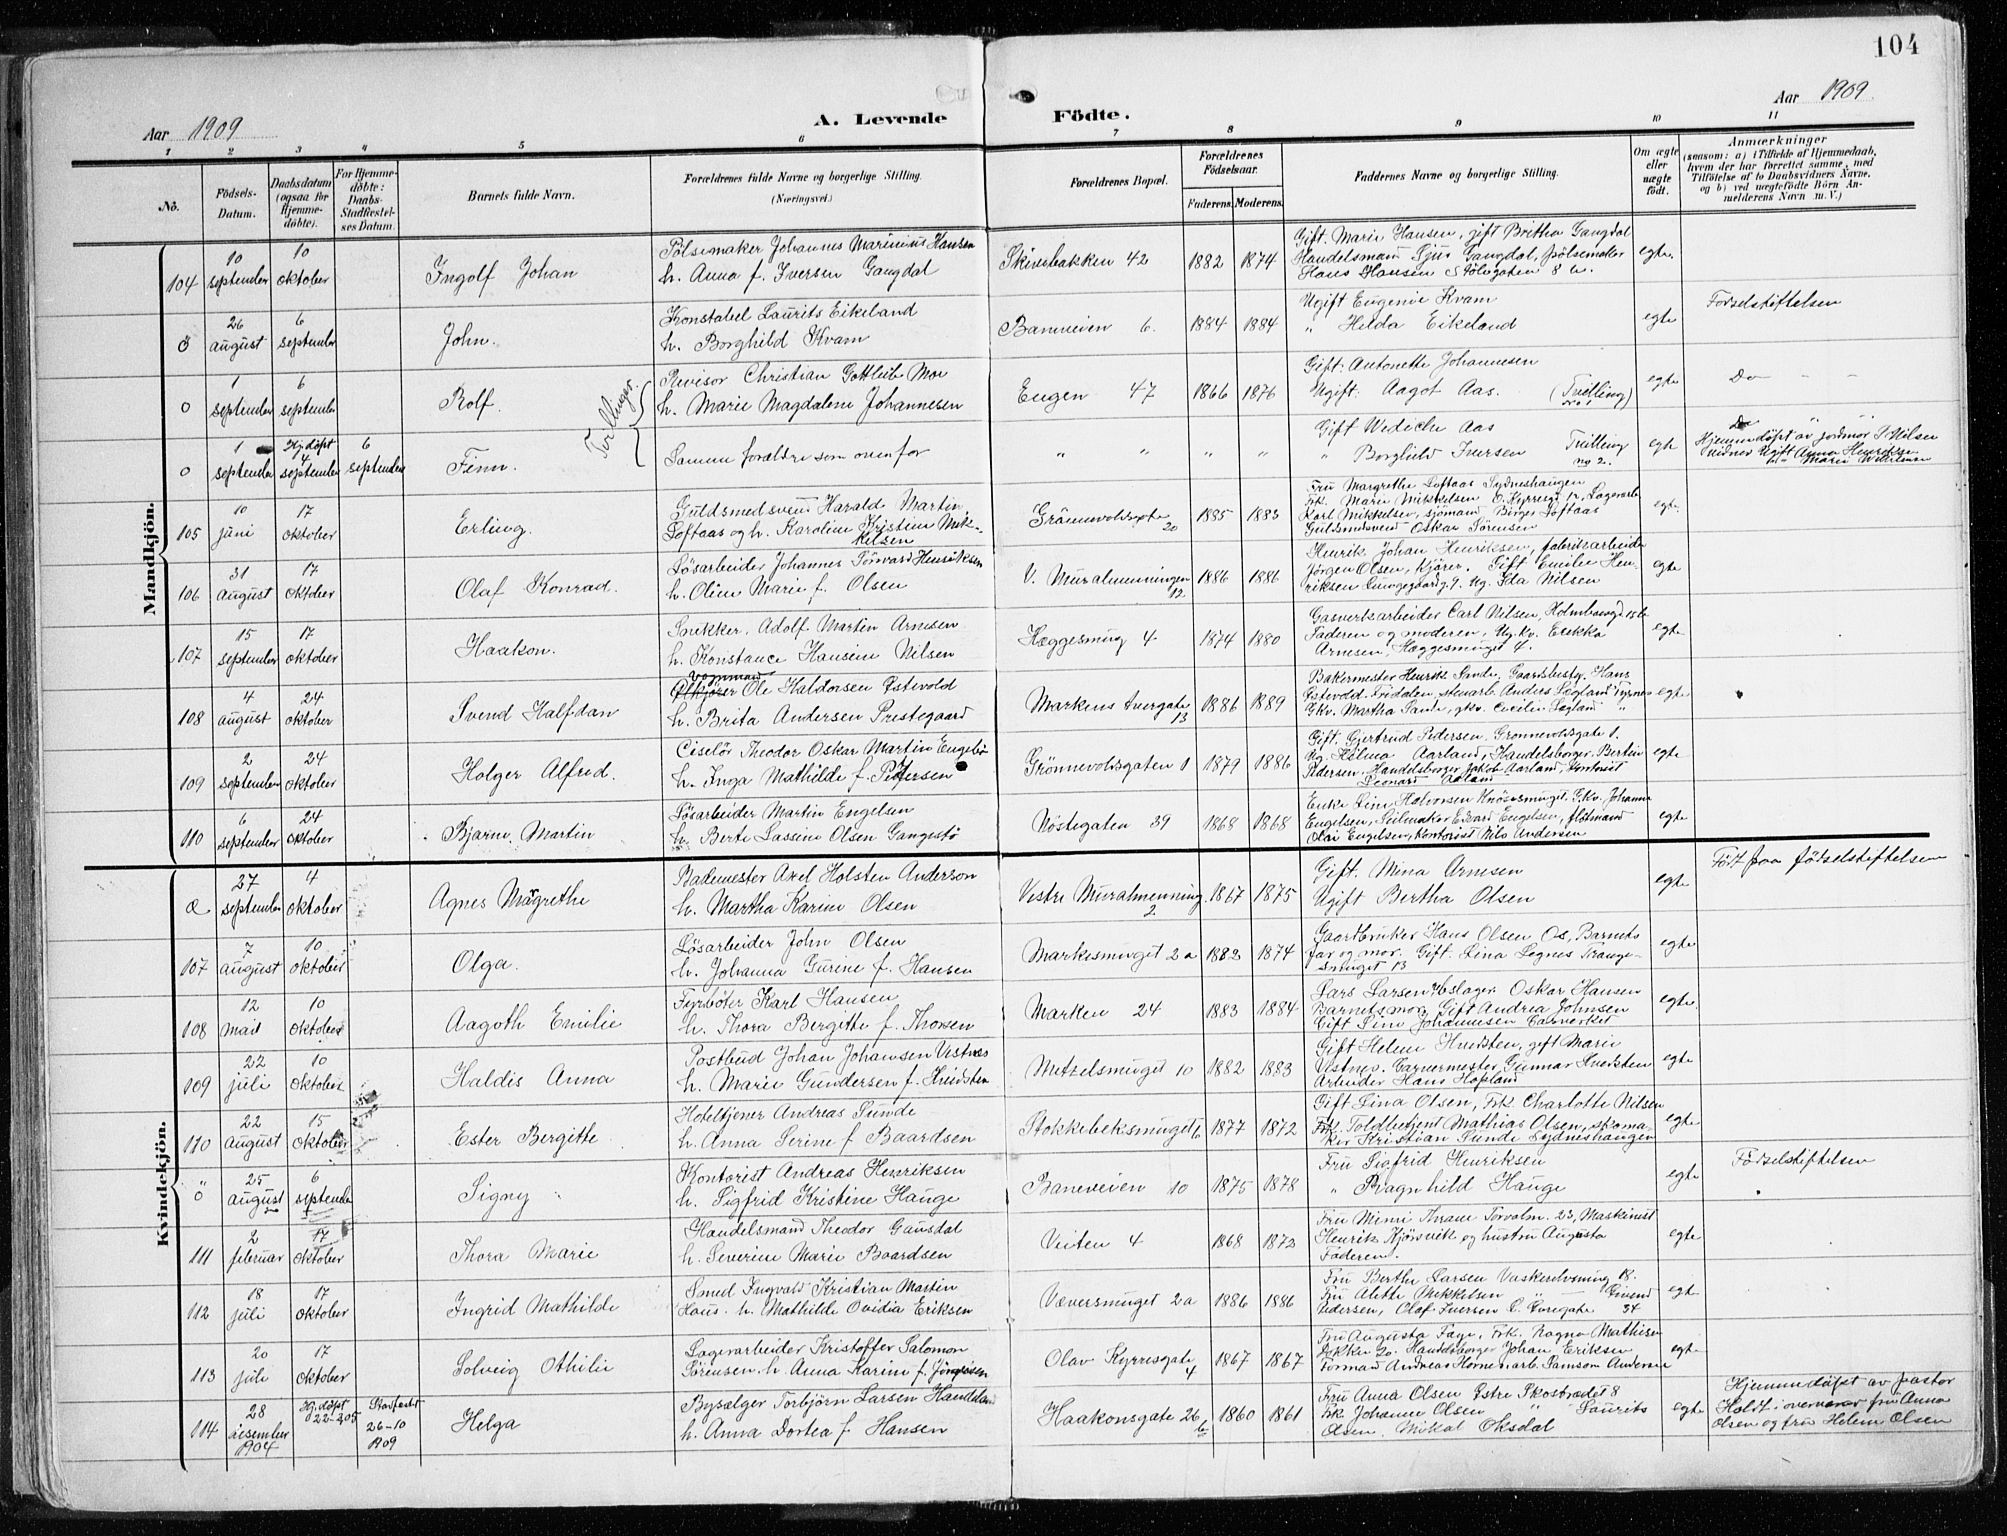 104
Aar 1909
A. Levende
Födte.
Aar 1909
1 2 3 4 5 6 7 8 9 10 11
No.
Födsels-Datum.
Daabsdatum (ogsaa for Hjemmedöbte).
For Hjemmedöbte: Daabs-Stadfæstelses Datum.
Barnets fulde Navn.
Forældrenes fulde Navne og borgerlige Stilling.
(Næringsvei.)
Forældrenes Bopæl.
Forældrenes Födselsaar.
Faderens. Moderens.
Faddernes Navne og borgerlige Stilling.
Om ægte eller uægte födt.
Anmærkninger
(saasom: a) i Tilfælde af Hjemmedaab,
hvem der har forrettet samme, med
Tilföielse af to Daabsvidners Navne,
og b) ved uægtefödte Börn Anmelderens Navn m. V.)
Mandkjön.
104 10 september 10 oktober Ingolf Johan
Pölsemaker Johannes Marinius Hansen
h. Anna f. Iversen Gangdal
Skivebakken 42 1882 1874
Gift. Marie Hansen, gift Britha Gangdal
Handelsmand Sjur Gangdal, pölsemaker
Hans Hansen Stölegaten 8 b. egte.
ö 26 august 6 september John.
Konstabel Laurits Eikeland
h. Borghild Kvam
Banneien 6. 1884 1884
Ugift Eugenie Kvam
" Helda Eikeland egte Fødselstiftelsen
o 1 september 6 september Rolf.
Tvillinger.
Revisor Christian Gottlieb Moe
h. Marie Magdalene Johannesen
Engen 47 1866 1876
Gift. Antonette Johannesen
Ugift. Aagot Aas. (Tvilling no 1) egte Do - -
o 1 september Hj.döpt 4 september 6 september Finn.
Samme forældre som ovenfor
" " " "
Gift Wediche Aas
" Borghild Iversen Tvilling no 2. egte
Do
Hjemmedöpt av jordmor S Nilsen
vidner Ugift Anna Henriksen
105 10 juni 17 oktober Erling.
Guldsmedsvend Harald Martin
Loftaas og h. Karoline Kristine Mikkelsen
Grönnevoldsgte 20 1885 1883
Fru Margrethe Loftaas Sydneshaugen
Frk. Marie Mikkelsen O. Kyrresgt , Lagerarb.
Karl Mikkelsen, sjömand Birger Loftaas
Guldsmedsvend Oskar Sörensen egte.
106 31 august 17 oktober Olaf Konrad.
Lösarbeider Johannes Torvard Henriksen
h. Oline Marie f. Olsen
V. Muralmenningen 12 1886 1886
Henrik Johan Henriksen, fabrikarbeider
Jörgen Olsen, Kjörer. Gift Emilie Henriksen Lungegaardg. 9. Ug. Ida Nilsen egte
107 15 september 17 oktober Haakon.
Snikker. Adolf Martin Arnesen
h. Konstance Hansine Nilsen
Hæggesmug 4 1874 1880
Gasverksarbeider Carl Nilsen, Holmboegd 15 b
Faderen og moderen, Ug. Kv. Erikka
Arnesen, Hæggesmuget 4. egte
108 4 august 24 oktober Svend Halfdan
vognmand
Ole Haldorsen Østevold
h. Brita Andersen Prestegaard
Markens tvergate 13 1886 1889
Bakermester Henrik Sande, Gaardsbesty. Hans
Østevold. Fridalen, stenarb. Anders Søgland Fyrnes
G.kv. Martha Sande, gkv. Cecilie Søgland " egte
109 2 september 24 oktober Holger Alfred.
Ciselör Theodor Oskar Martin
h. Inga Mathilde f. Pettersen
Grönnevolsgaten 1 1879 1886
Gift. Gjertrud Pedersen. Gronnevolsgate 1.
Ug. Helma Aarland, Handelsborger. Bertin
Pedersen, Handelsborger Jakob Aarland, Kontorist
Leonard Aarland egte
110 6 september 24 oktober Bjarne. Martin
Lösarbeider Martin Engelsen
h. Berte Lassine Olsen Gangestö
Nöstegaten 39 1868 1868
Enke Line Halvorsen Knösesmuget. G.Kv. Johanna
Engelsen, Seilmaker Edvard Engelsen, flötmand
Olai Engelsen, Kontorist Nils Andersen egte
Kvindekjön.
æ 27 september 4 oktober Agnes Margrethe
Bademester Axel Holsten Anderson
h. Martha Karine Olsen
Vestre Muralmenning 2. 1867 1875
Gift. Mina Arnesen
Ugift Bertha Olsen egte Født paa fødselstiftelsen
107 7 august 10 oktober Olga.
Løsarbeider John Olsen
h. Johanna Gurine f. Hansen
Markesmuget 2a 1882 1874
Gaardbruker Hans Olsen Os, Barnets
far og mor. Gift. Lina Legnes Trangesmuget 13 egte
108 12 mai 10 oktober Aagoth Emilie
Fyrböter Karl Hansen
h. Thora Bergitte f. Thorsen
Marken 24 1883 1884
Lars Larsen Oskar Hansen
Barnets mor, Gift Andrea Johnsen
Gift Line Johannesen Garverket egte.
109 22 juli 10 oktober Haldis Anna
Postbud Johan Johansen Vestnæs
h. Marie Gundersen f. Hvidsten
Metzelsmuget 10 1882 1883
Gift Helene Hvidsten, gift Marie
Vestnes. Garvermester Gunnar Hvidsten
Arbeider Hans Hopland egte
110 22 august 15 oktober Ester Bergitte
Hoteltjener Andreas Sunde
h. Anna Serine f. Baardsen
Stokkebeksmuget 6 1877 1872
Gift Lina Olsen, Frk. Charlotte Nilsen
Toldbetjent Mathias Olsen, skomaker Kristian Sunde Sydneshaugen egte
ö 25 august 6 september Signy
Kontorist Andreas Henriksen
h. Sigfrid Kristine Hauge
Baneveien 10 1875 1878
Fru Sigfrid Henriksen
" Ragnhild Hauge egte Fødselstiftelsen
111 2 februar 17 oktober Thora Marie
Handelsmand Theodor Gausdal
h. Severine Marie Baardsen
Veiten 4 1868 1872
Fru Mimi Torvalm. 23, Maskinist
Henrik Kjörsvik og hustru Augusta
Faderen. egte
112 18 juli 17 oktober Ingrid Mathilde
Smed Ingvald Kristian Martin
Haus. h. Mathilde Ovidia Eriksen
Væversmuget 2a 1886 1886
Fru Berthe Larsen Vaskerelvsning 18.
Fru Alette Mikkelsen " Eivend
Pedersen, Olaf Iversen 34 egte
113 20 juli 17 oktober Solveig Othilie
Lagerarbeider Kristoffer Salomon
Sörensen. h. Anna Karine f.
Olav Kyrresgate 4 1867 1867
Fru Augusta Fage, Frk. Ragna Mathisen
Handelsborger Johan Eriksen
Formand Andreas Horne, arb. Samson Andersen egte
114 28 desember 1904 Hj.döpt 22-3 05 Stadfæstet 26-10 1909 Helga
Bysælger Torbjörn Larsen
h. Anna Dortea f. Hansen
Haakonsgate 26 b 1860 1861
Fru Anna Olsen Østre Skostrædet 8
Frk. Johanne Olsen " Laurits
Olsen. Mikal Oksdal egte
Hjemmedöpt av pastor
Holdt i overvær fru Anna
Olsen og fru Helene Olsen